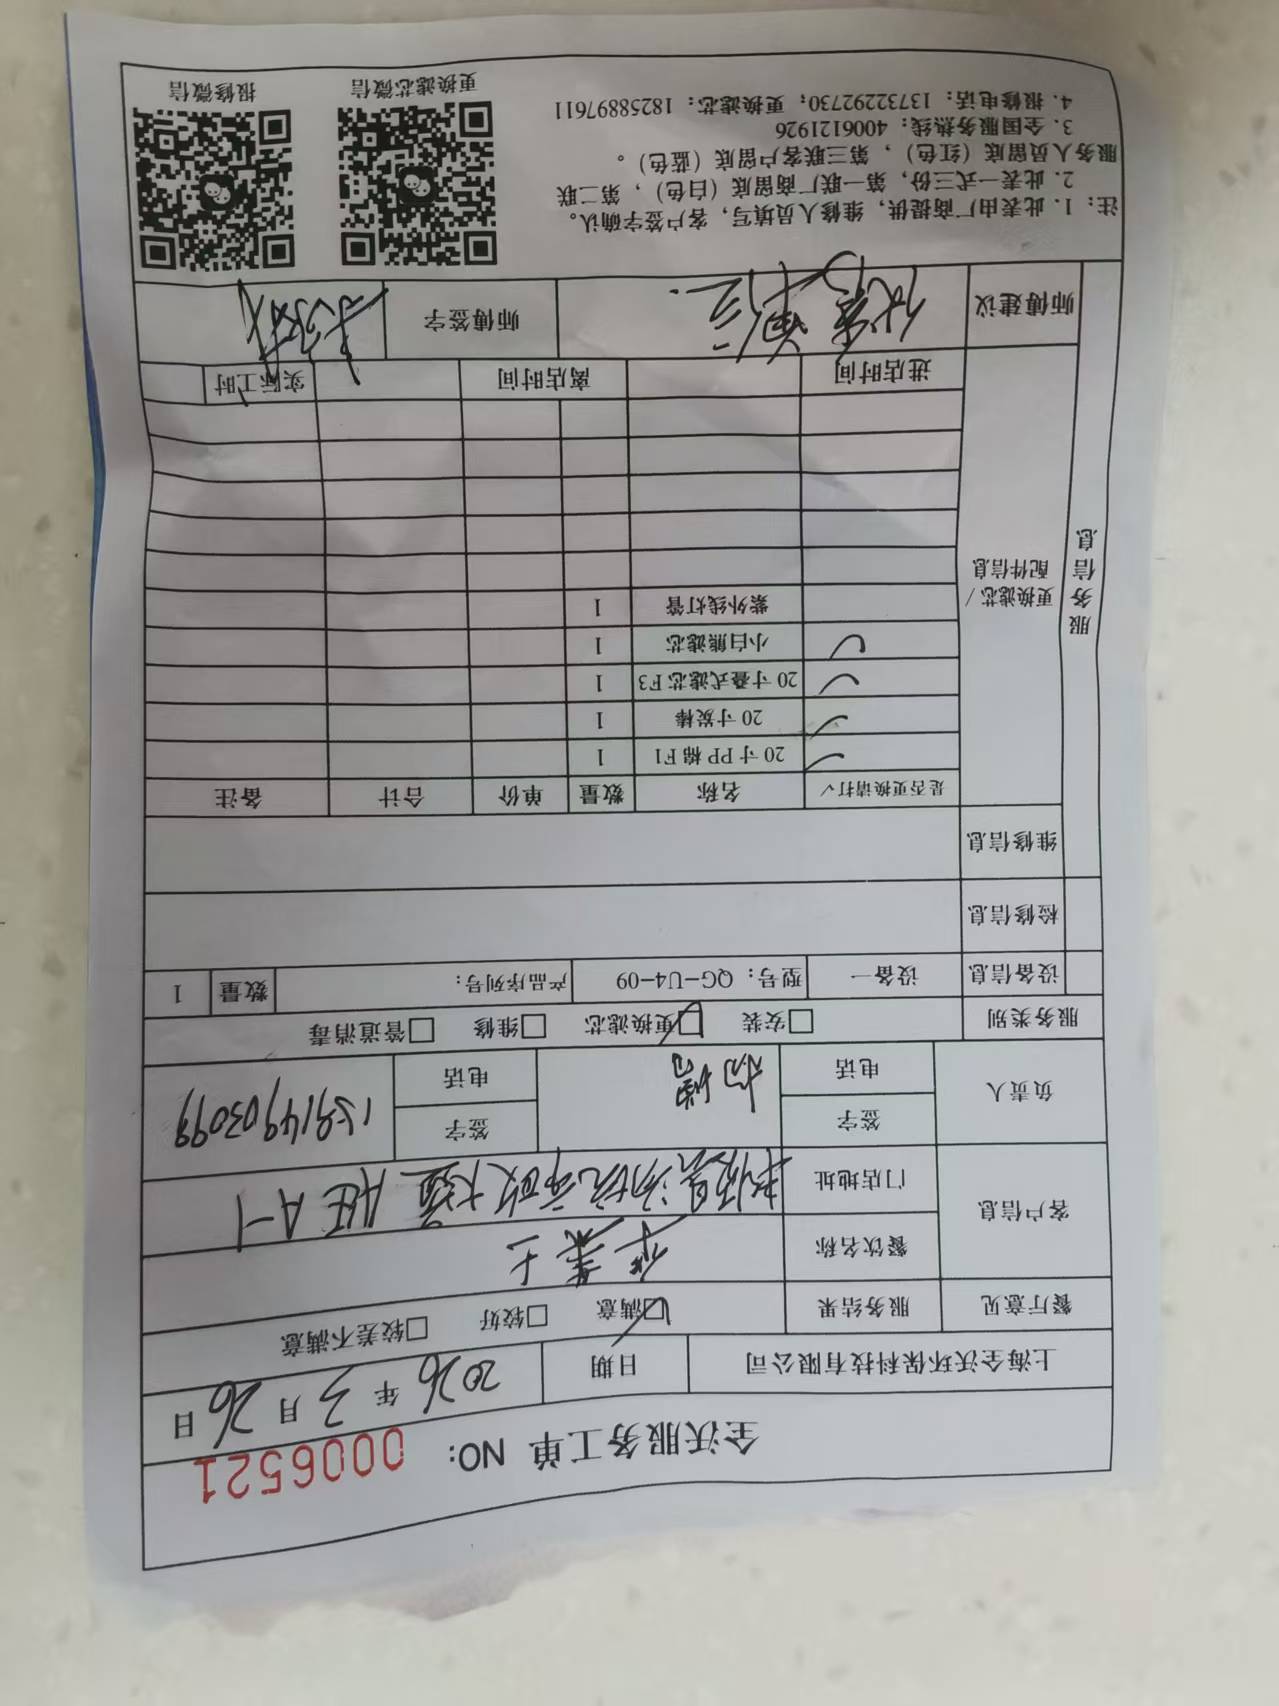 全沃服务工单 NO: 0006521
上海全沃环保科技有限公司 日期 2026年3月26日
餐厅意见 服务结果 ☑满意 □较好 □较差不满意
客户信息 餐饮名称 华莱士
门店地址 大道 A-1
负责人 签字 杨 签字
电话 电话 15914903099
服务类别 □安装 ☑更换滤芯 □维修 □管道消毒
设备信息 设备一 型号：QG-U4-09 产品序列号： 数量 1
检修信息
维修信息
服务信息
更换滤芯/配件信息
是否更换请打√ 名称 数量 单价 合计 备注
✓ 20寸PP棉F1 1
✓ 20寸炭棒 1
✓ 20寸叠式滤芯F3 1
✓ 小白熊滤芯 1
紫外线灯管 1
进店时间 离店时间 实际工时
师傅建议 师傅签字
注：1. 此表由厂商提供，维修人员填写，客户签字确认。
2. 此表一式三份，第一联厂商留底（白色），第二联
服务人员留底（红色），第三联客户留底（蓝色）。
3. 全国服务热线：4006121926
4. 报修电话：13732292730；更换滤芯：18258897611
更换滤芯微信 报修微信